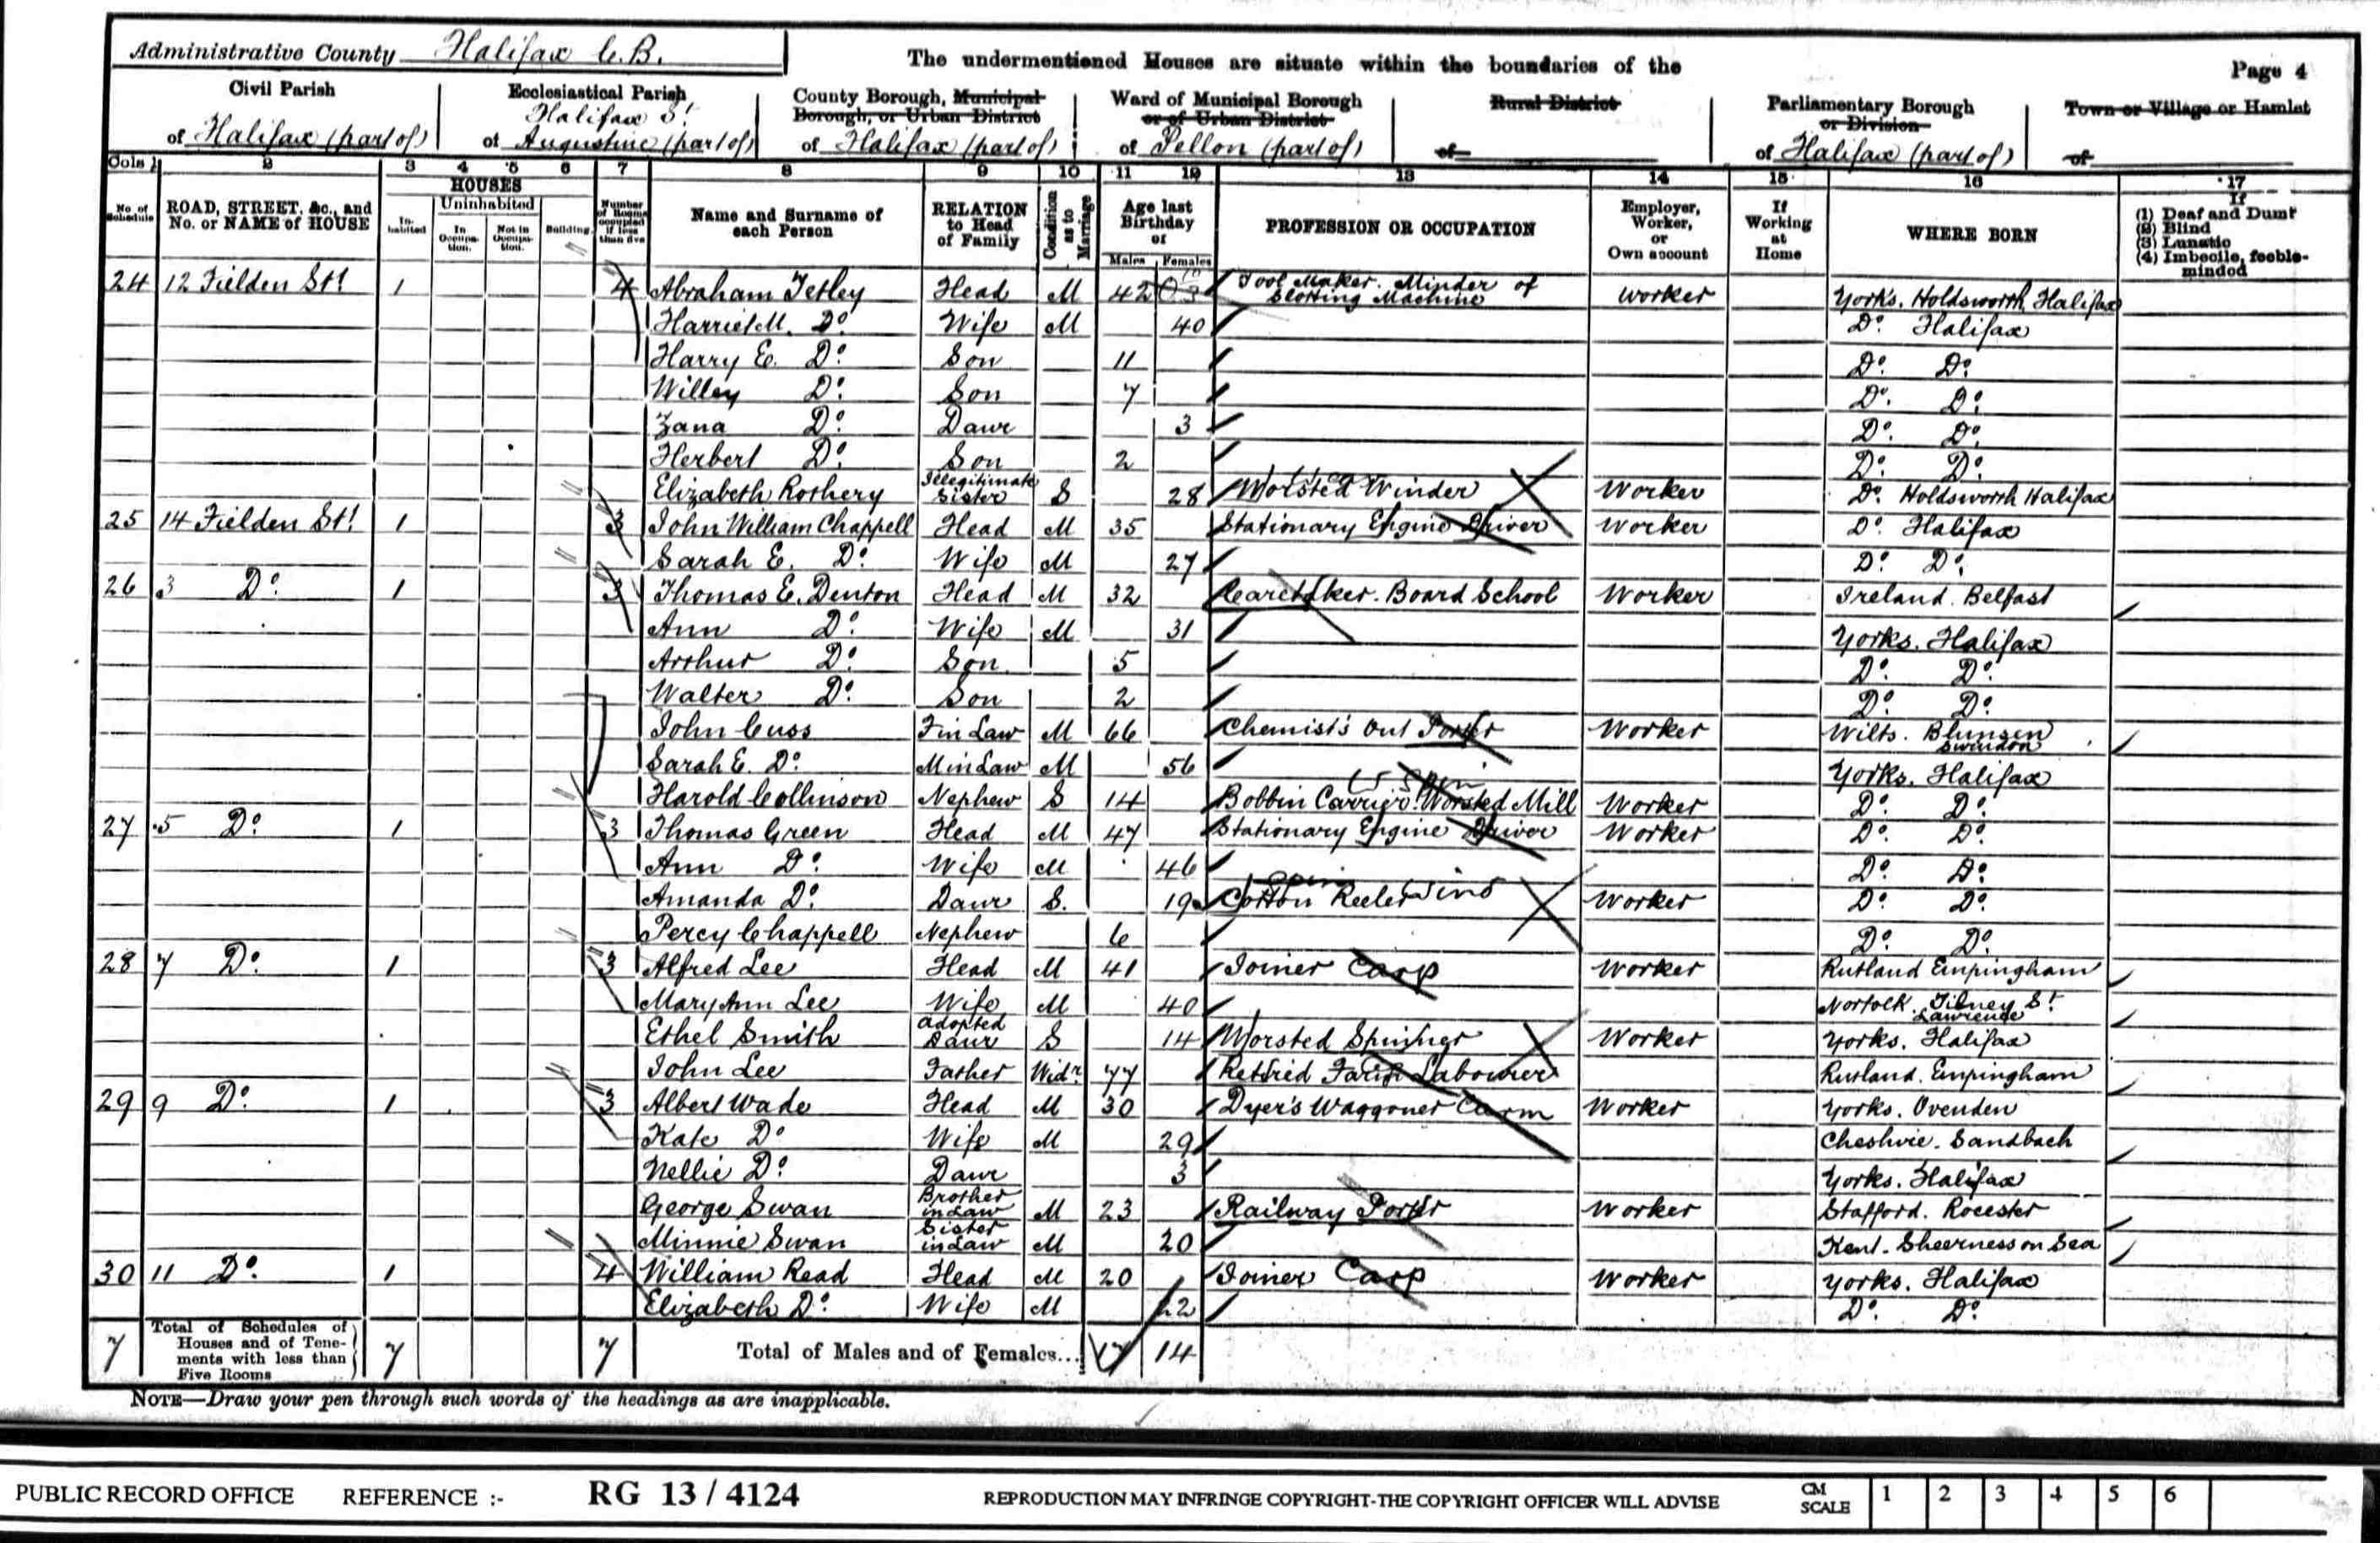 Administrative County Halifax C.B. The undermentioned Houses are situate within the boundaries of the Page 4
Civil Parish of Halifax (part of) Ecclesiastical Parish of Halifax St Augustine (part of) County Borough, Municipal Borough, or Urban District of Halifax (part of) Ward of Municipal Borough or of Urban District of Pellon (part of) Rural District of Parliamentary Borough or Division of Halifax (part of) Town or Village or Hamlet of
Cols 1 2 3 4 5 6 7 8 9 10 11 12 13 14 15 16 17
No. of Schedule ROAD, STREET, &c., and No. or NAME of HOUSE HOUSES Inhabited Uninhabited In Occupation. Not in Occupation. Building. Number of Rooms occupied if less than five Name and Surname of each Person RELATION to Head of Family Condition as to Marriage Age last Birthday of Males Females PROFESSION OR OCCUPATION Employer, Worker, or Own account If Working at Home WHERE BORN If (1) Deaf and Dumb (2) Blind (3) Lunatic (4) Imbecile, feeble-minded
24 12 Fielden St. 1 4 Abraham Tetley Head M 42 Tool Maker. Minder of Slotting Machine Worker Yorks. Holdsworth, Halifax
Harriet M. Do. Wife M 40 Do. Halifax
Harry E. Do. Son 11 Do. Do.
Willey Do. Son 7 Do. Do.
Zana Do. Daur 3 Do. Do.
Herbert Do. Son 2 Do. Do.
Elizabeth Rothery Illegitimate Sister S 28 Worsted Winder Worker Do. Holdsworth Halifax
25 14 Fielden St. 1 3 John William Chappell Head M 35 Stationary Engine Driver Worker Do. Halifax
Sarah E. Do. Wife M 27 Do. Do.
26 3 Do. 1 3 Thomas E. Denton Head M 32 Caretaker. Board School Worker Ireland. Belfast
Ann Do. Wife M 31 Yorks. Halifax
Arthur Do. Son 5 Do. Do.
Walter Do. Son 2 Do. Do.
John Cuss F in Law M 66 Chemist's Out Porter Worker Wilts. Blunsen Swindon
Sarah E. Do. M in Law M 56 Yorks. Halifax
Harold Collinson Nephew S 14 Bobbin Carrier. Worsted Mill Worker Do. Do.
27 5 Do. 1 3 Thomas Green Head M 47 Stationary Engine Driver Worker Do. Do.
Ann Do. Wife M 46 Do. Do.
Amanda Do. Daur S. 19 Cotton Reeler Wind Worker Do. Do.
Percy Chappell Nephew 6 Do. Do.
28 7 Do. 1 3 Alfred Lee Head M 41 Joiner Carp Worker Rutland Empingham
Mary Ann Lee Wife M 40 Norfolk. Tilney St. Lawrence
Ethel Smith adopted Daur S 14 Worsted Spinner Worker Yorks. Halifax
John Lee Father Widr. 77 Retired Farm Labourer Rutland. Empingham
29 9 Do. 1 3 Albert Wade Head M 30 Dyer's Waggoner Carm Worker Yorks. Ovenden
Kate Do. Wife M 29 Cheshire. Sandbach
Nellie Do. Daur 3 Yorks. Halifax
George Swan Brother in Law M 23 Railway Porter Worker Stafford. Rocester
Minnie Swan Sister in Law M 20 Kent. Sheerness on Sea
30 11 Do. 1 4 William Read Head M 20 Joiner Carp Worker Yorks. Halifax
Elizabeth Do. Wife M 22 Do. Do.
7 Total of Schedules of Houses and of Tenements with less than Five Rooms 7 7 Total of Males and of Females... 17 14
NOTE—Draw your pen through such words of the headings as are inapplicable.
PUBLIC RECORD OFFICE REFERENCE :- RG 13 / 4124 REPRODUCTION MAY INFRINGE COPYRIGHT-THE COPYRIGHT OFFICER WILL ADVISE CM SCALE 1 2 3 4 5 6